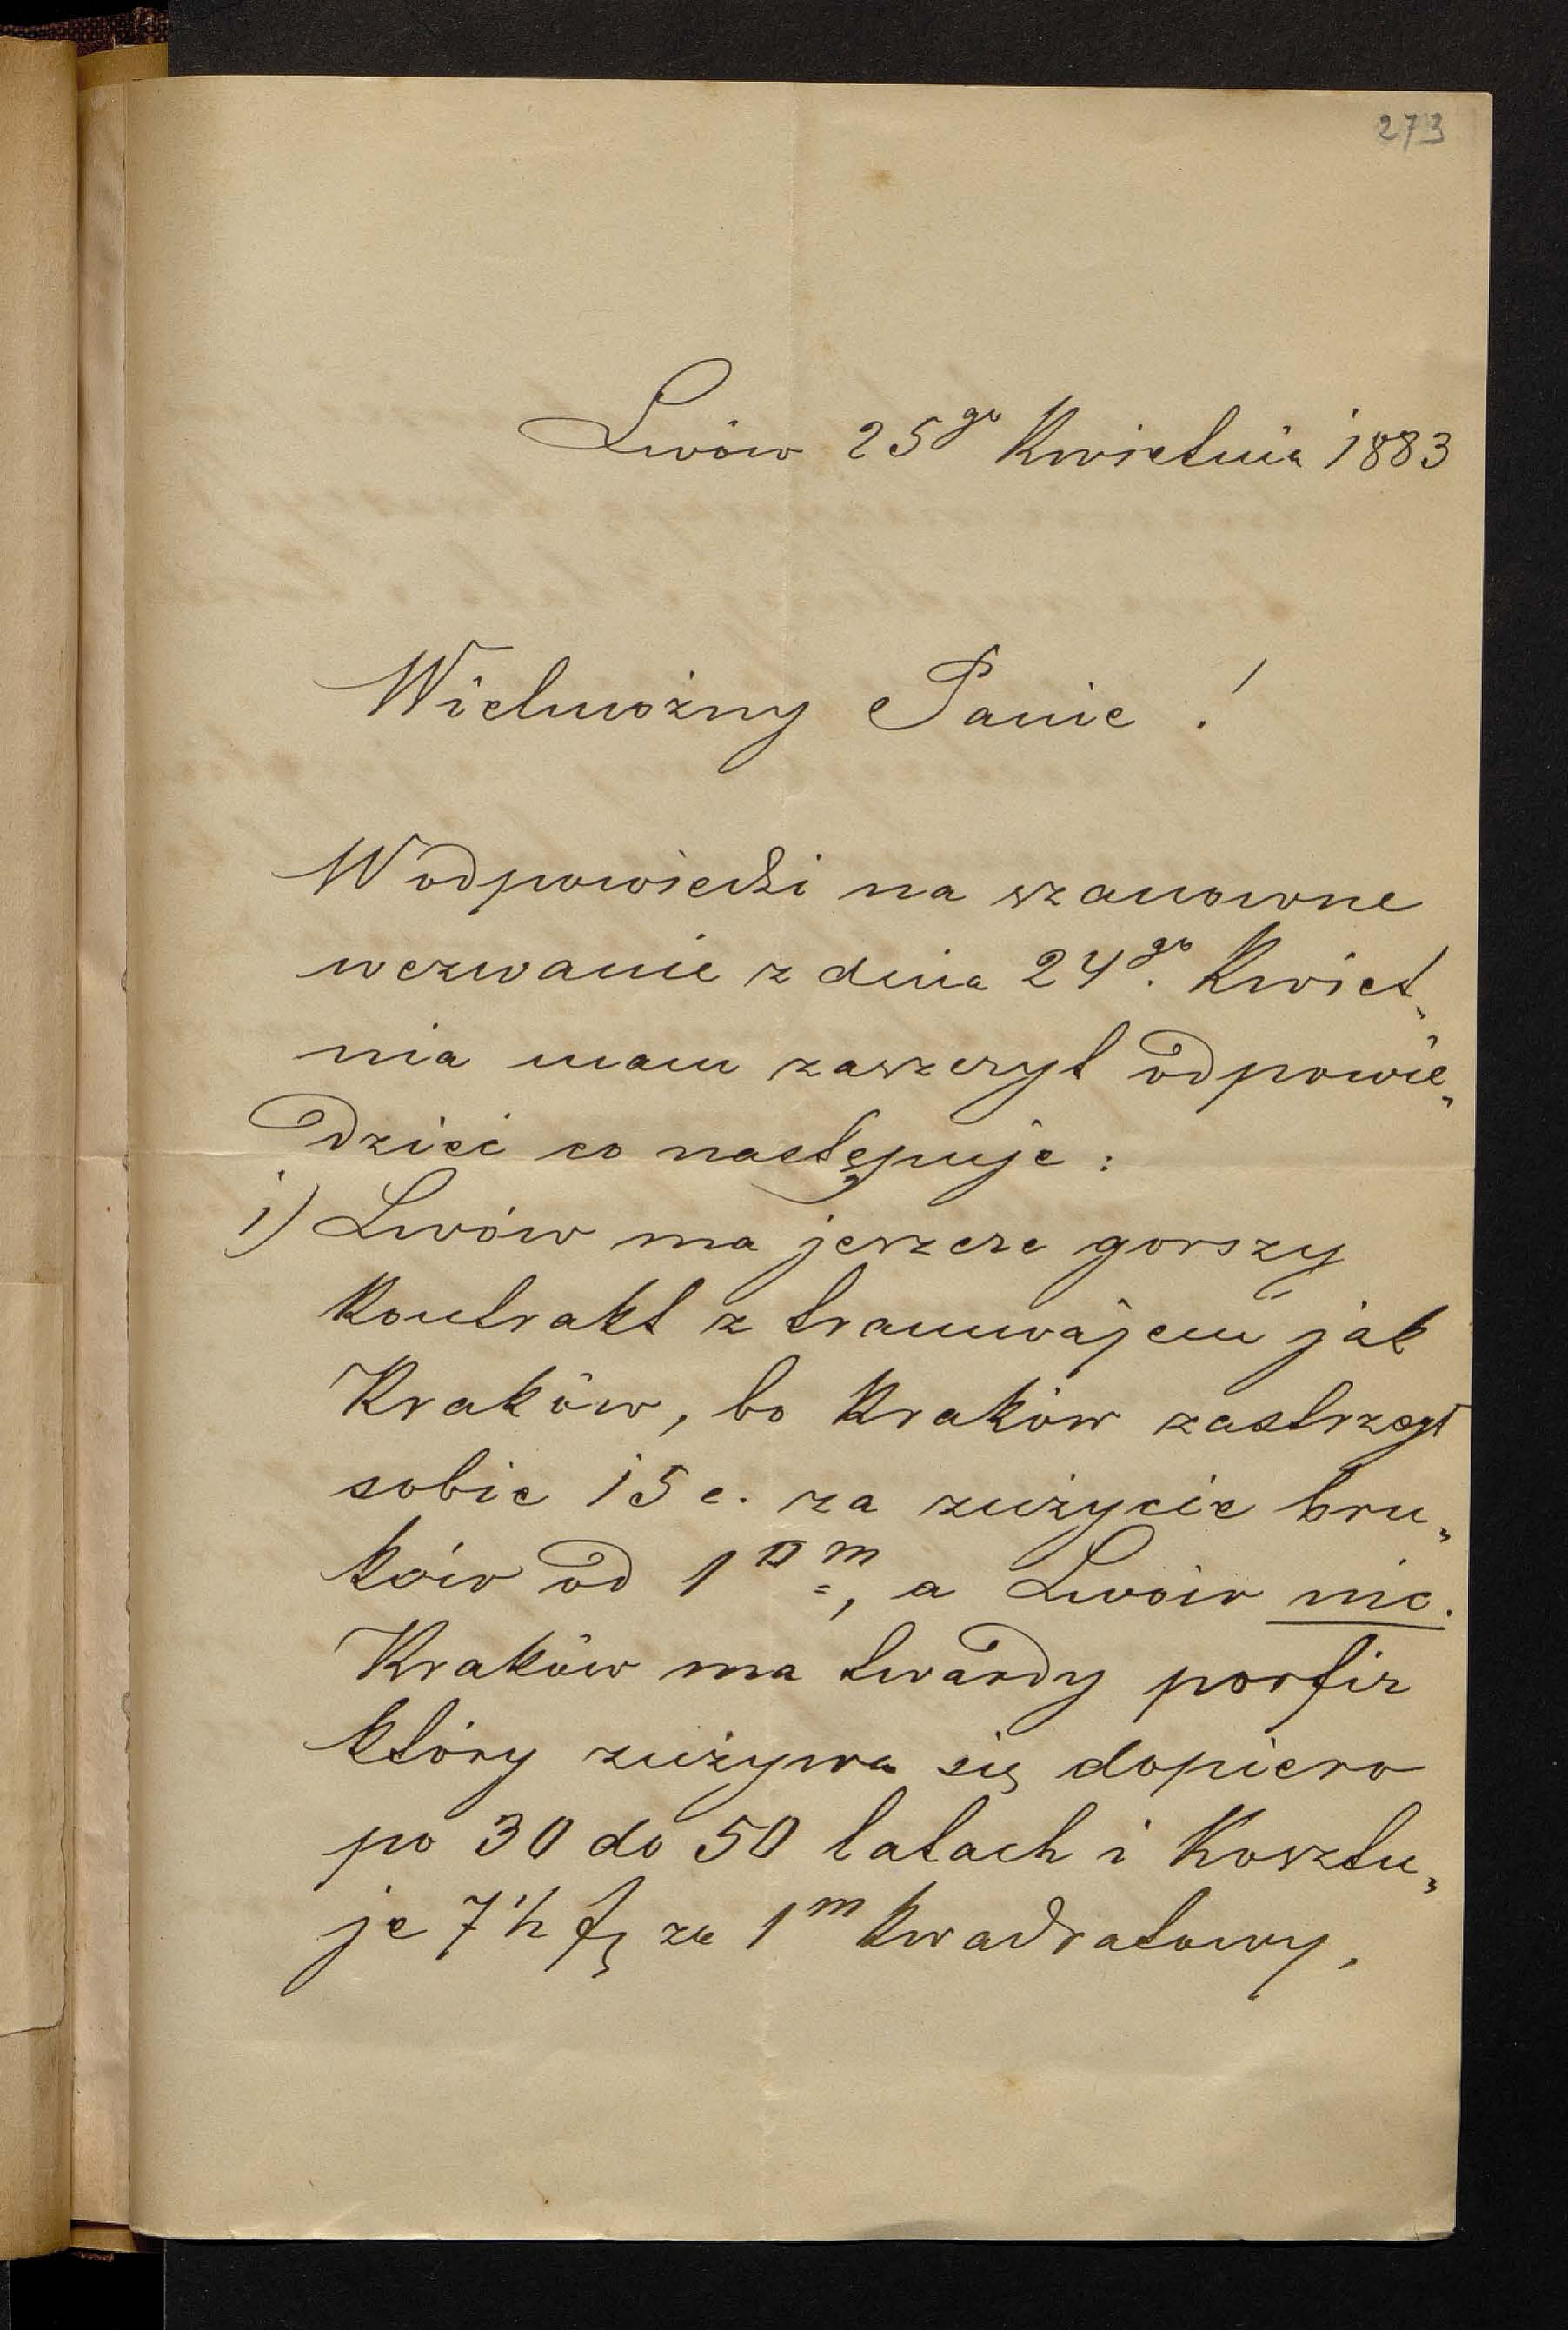 273
Lwów 25go Kwietnia 1883
Wielmożny Panie !
W odpowiedzi na szanowne
wezwanie z dnia 24go. Kwiet„
nia mam zaszczyt odpowie„
dzieć co następuje :
1) Lwów ma jeszcze gorszy
kontrakt z tramwajem jak
Kraków, bo Kraków zastrzegł
sobie 15 c. za zużycie bru„
ków od 1 □ m, a Lwów nic.
Kraków ma twardy porfir
który zużywa się dopiero
po 30 do 50 latach i kosztu„
je 7 1/2 fl za 1 m kwadratowy.